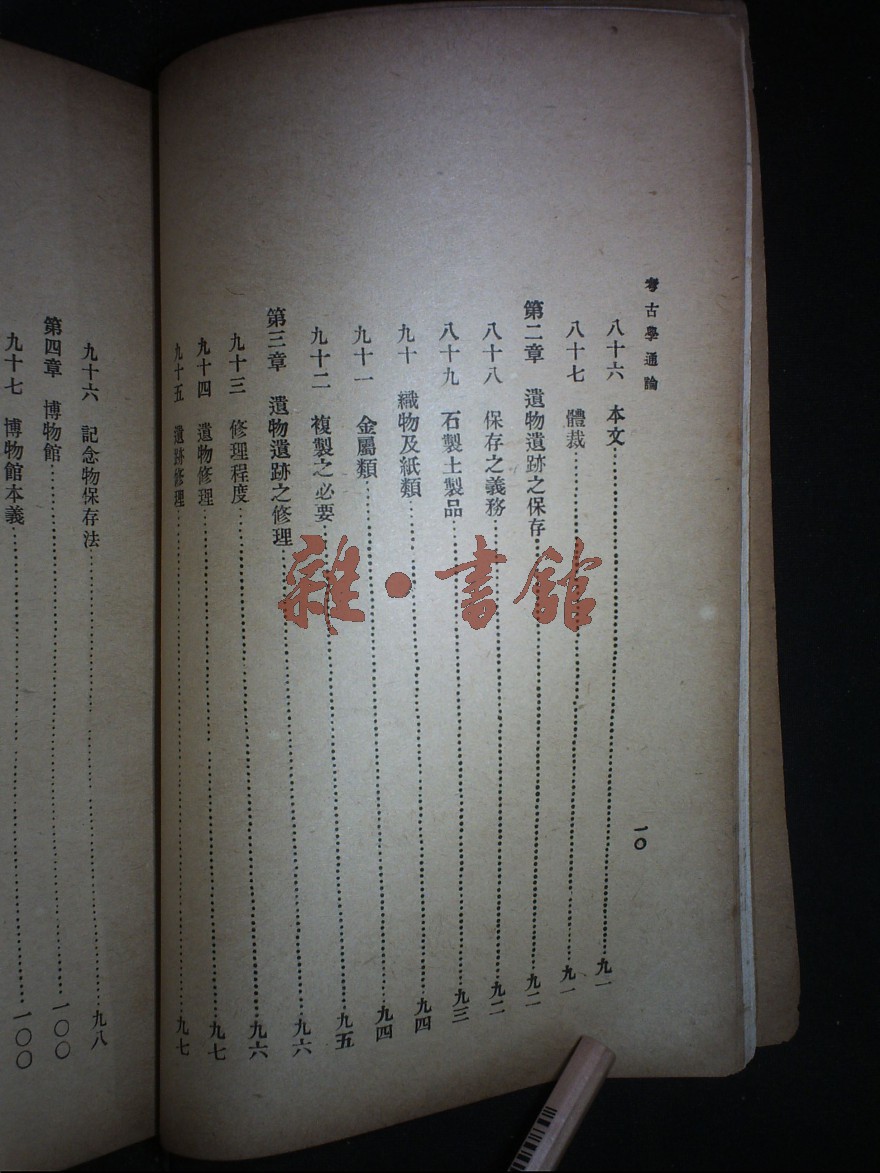 考古學通論
一〇
八十六 本文……九一
八十七 體裁……九一
第二章 遺物遺跡之保存……九二
八十八 保存之義務……九二
八十九 石製土製品……九三
九十 織物及紙類……九四
九十一 金屬類……九四
九十二 複製之必要……九五
第三章 遺物遺跡之修理……九六
九十三 修理程度……九六
九十四 遺物修理……九七
九十五 遺跡修理……九七
九十六 記念物保存法……九八
第四章 博物館……一〇〇
九十七 博物館本義……一〇〇
雜·書館